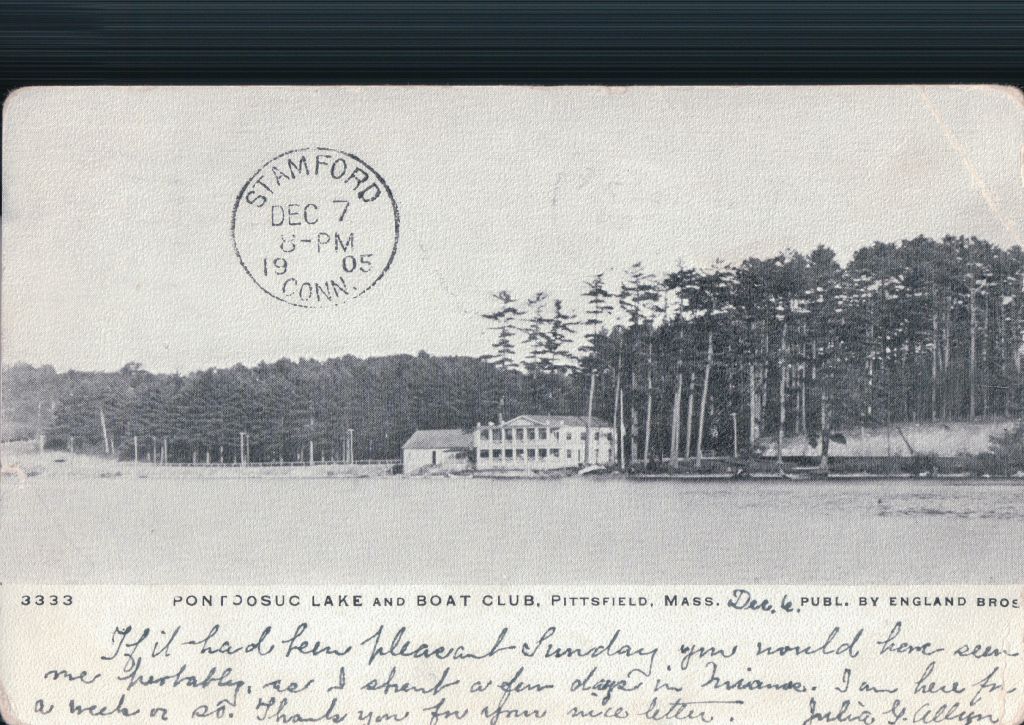 STAMFORD
DEC 7
8-PM
19 05
CONN.
3333 PONTOOSUC LAKE AND BOAT CLUB, PITTSFIELD, MASS. Dec. 6. PUBL. BY ENGLAND BROS
If it had been pleasant Sunday you would have seen
me probably, as I spent a few days in Mianus. I am here for
a week or so. Thank you for your nice letter. Julia G. Allyn